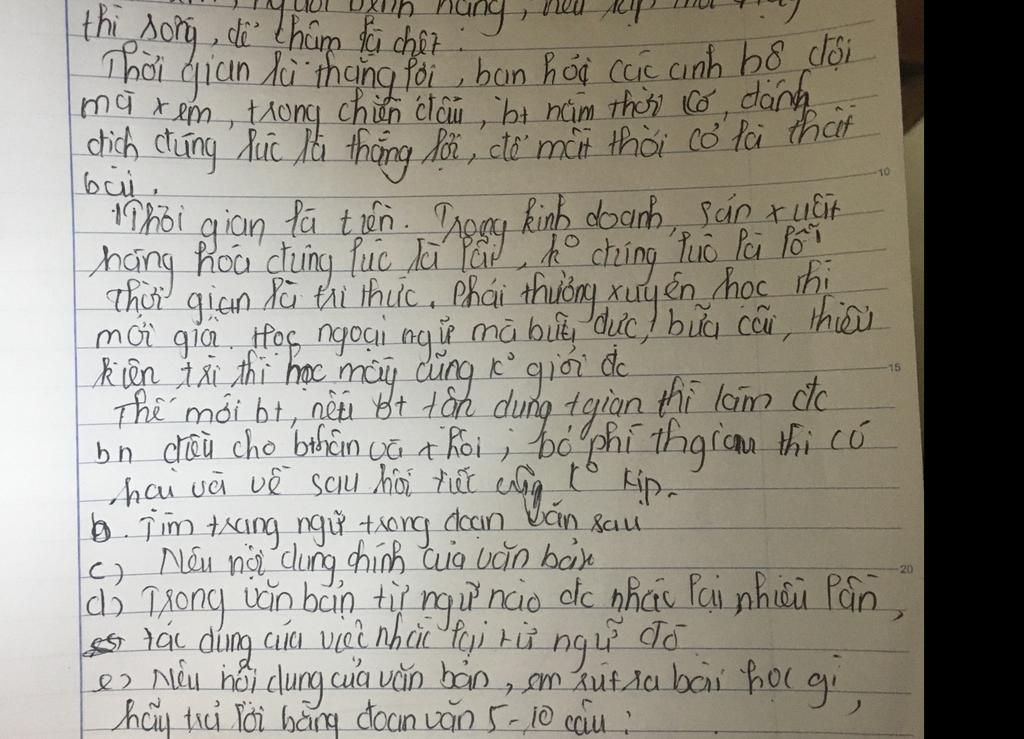 thì sống, để chậm là chết.
Thời gian là thắng lợi, bạn hỏi các anh bộ đội
mà xem, trong chiến đấu, bt nắm thời cơ, đánh
địch đúng lúc là thắng lợi, để mất thời cơ là thất
bại.
Thời gian là tiền. Trong kinh doanh, sản xuất
hàng hóa đúng lúc là lãi, ko đúng lúc là lỗ
Thời gian là tri thức. Phải thường xuyên học thì
mới giỏi. Học ngoại ngữ mà bữa đực, bữa cái, thiếu
kiên trì thì học mấy cũng ko giỏi đc
Thế mới bt, nếu bt tận dụng tgian thì làm đc
bn điều cho bthân và xhội, bỏ phí thgian thì có
hại và về sau hối tiếc cũng ko kịp.
b. Tìm trạng ngữ trong đoạn văn sau
c) Nêu nội dung chính của văn bản
d) Trong văn bản từ ngữ nào đc nhắc lại nhiều lần,
tác dụng của việc nhắc lại từ ngữ đó
e) Nêu nội dung của văn bản, em rút ra bài học gì,
hãy trả lời bằng đoạn văn 5-10 câu:
10
15
20